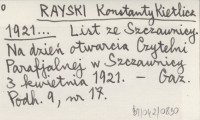 RAYSKI Konstanty Kietlicz
1921... List ze Szczawnicy.
Na dzień otwarcia Czytelni
Parafjalnej w Szczawnicy
3 kwietnia 1921. – Gaz.
Podh. 9, nr 17.